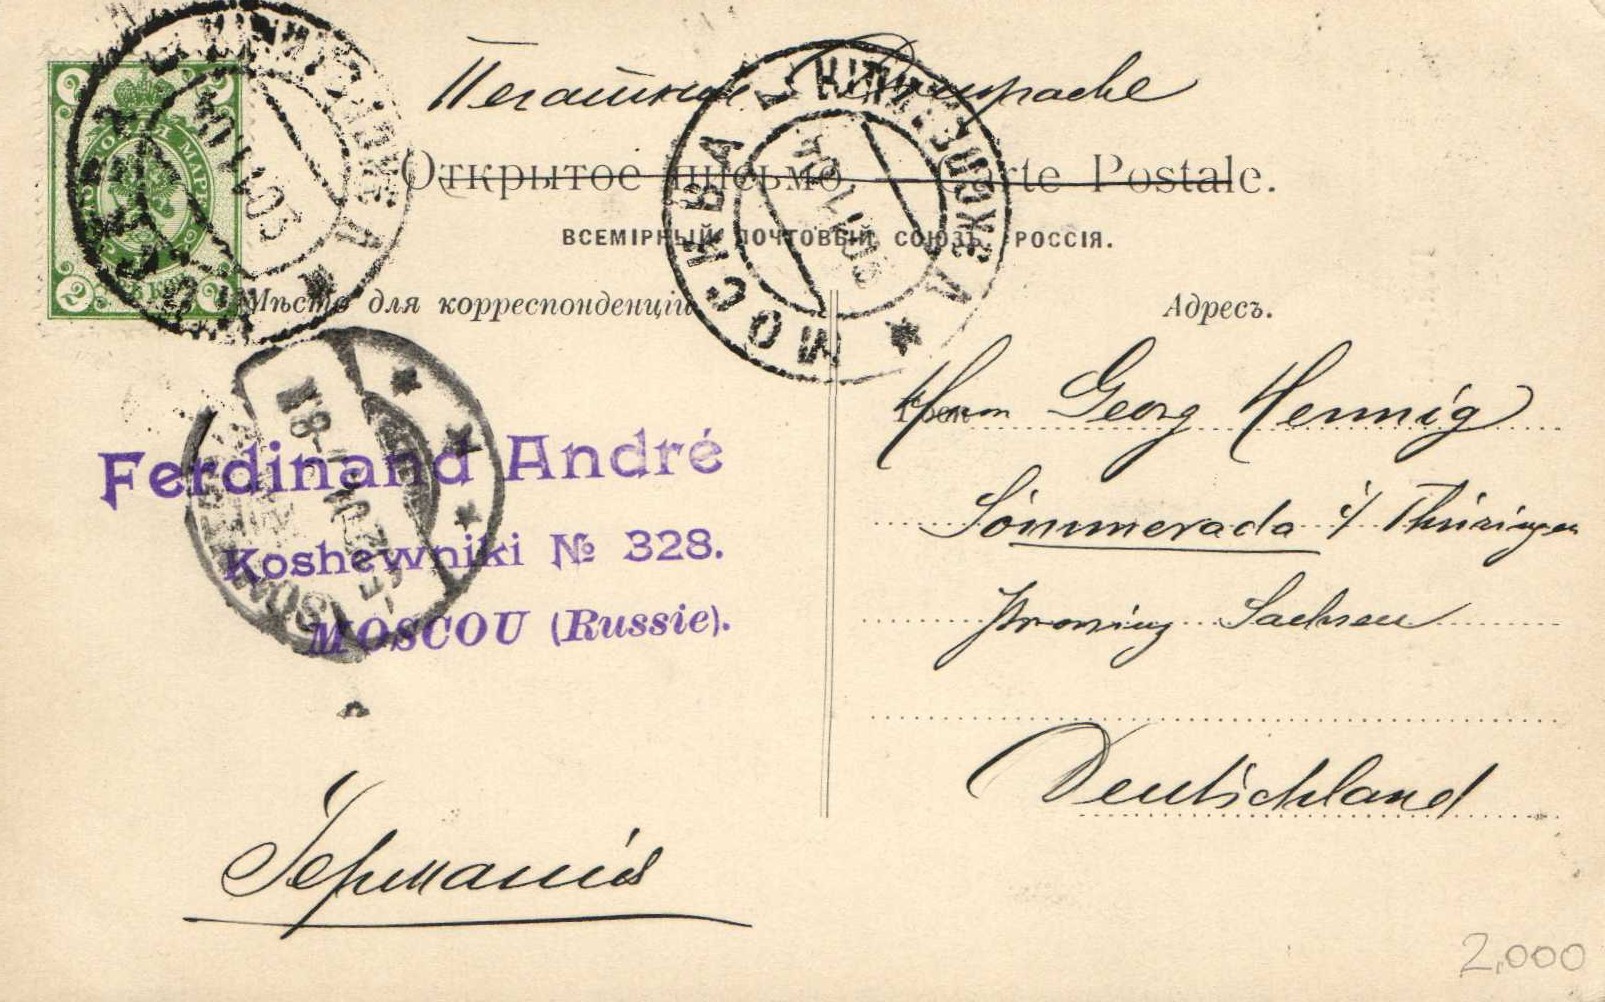 Печатное
Открытое письмо. — Carte Postale.
ВСЕМІРНЫЙ ПОЧТОВЫЙ СОЮЗЪ РОССІЯ.
Мѣсто для корреспонденціи
Адресъ.
МОСКВА
МОСКВА
ПОЧТОВАЯ МАРКА
2
2
2
2
Ferdinand André
Koshewniki № 328.
MOSCOU (Russie).
Германія
Herrn Georg Hennig
Sömmerada i/ Thüringen
Provinz Sachsen
Deutschland
2.000